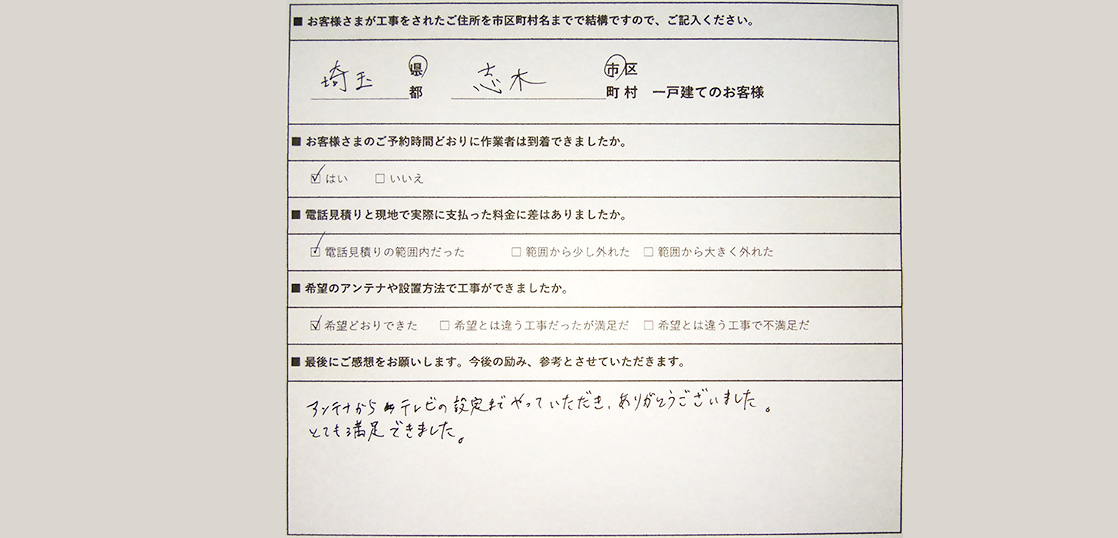 ■ お客様さまが工事をされたご住所を市区町村名までで結構ですので、ご記入ください。
埼玉 県 志木 市 区
都 町 村 一戸建てのお客様
■ お客様さまのご予約時間どおりに作業者は到着できましたか。
☑ はい □ いいえ
■ 電話見積りと現地で実際に支払った料金に差はありましたか。
☑ 電話見積りの範囲内だった □ 範囲から少し外れた □ 範囲から大きく外れた
■ 希望のアンテナや設置方法で工事ができましたか。
☑ 希望どおりできた □ 希望とは違う工事だったが満足だ □ 希望とは違う工事で不満足だ
■ 最後にご感想をお願いします。今後の励み、参考とさせていただきます。
アンテナから テレビの設定までやっていただき、ありがとうございました。
とても満足できました。